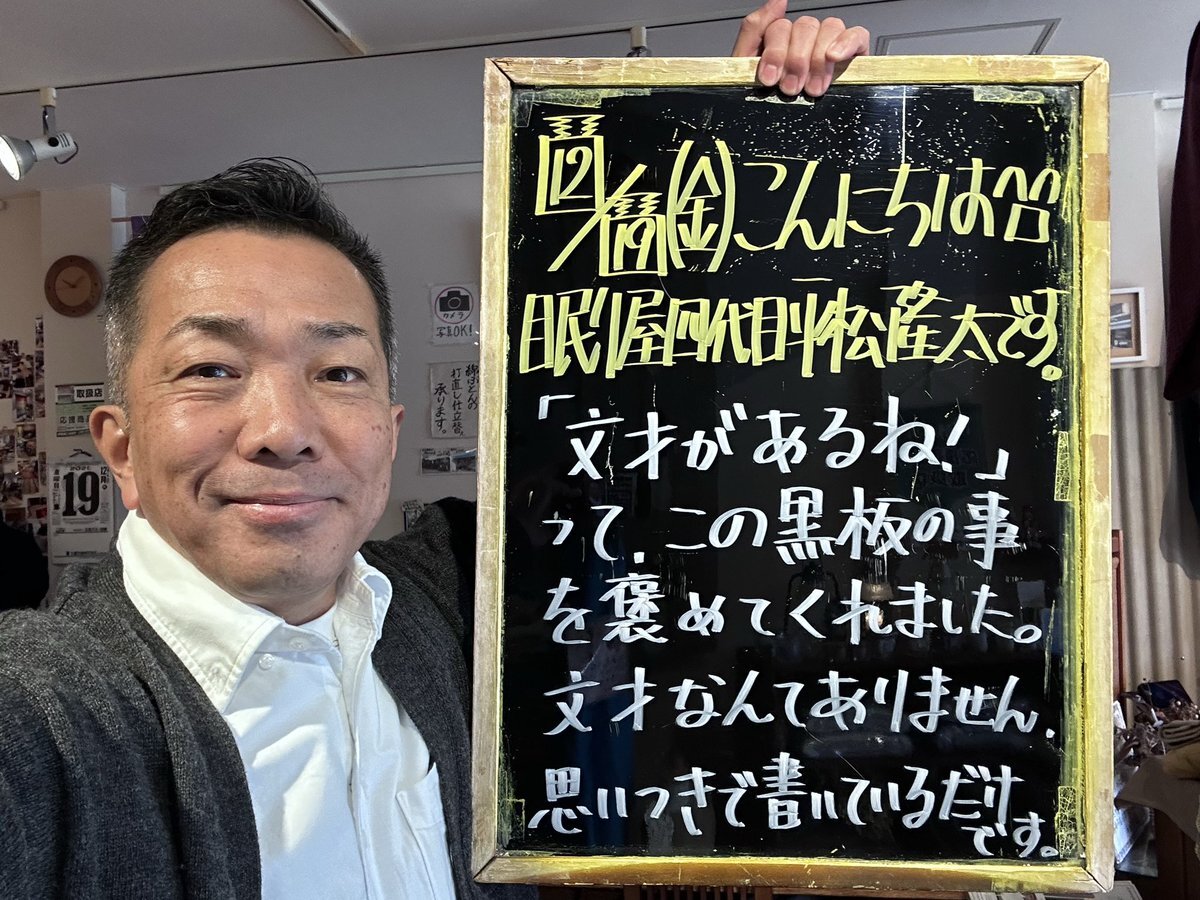 12/19(金)こんにちは
眠り屋四代目小松隆太です。
「文才があるね！」
って、この黒板の事
を褒めてくれました。
文才なんてありません、
思いつきで書いているだけ
です。
カメラ
写真OK!
綿ふとんの
打直し仕立替、
承ります。
取扱店
応援商
19